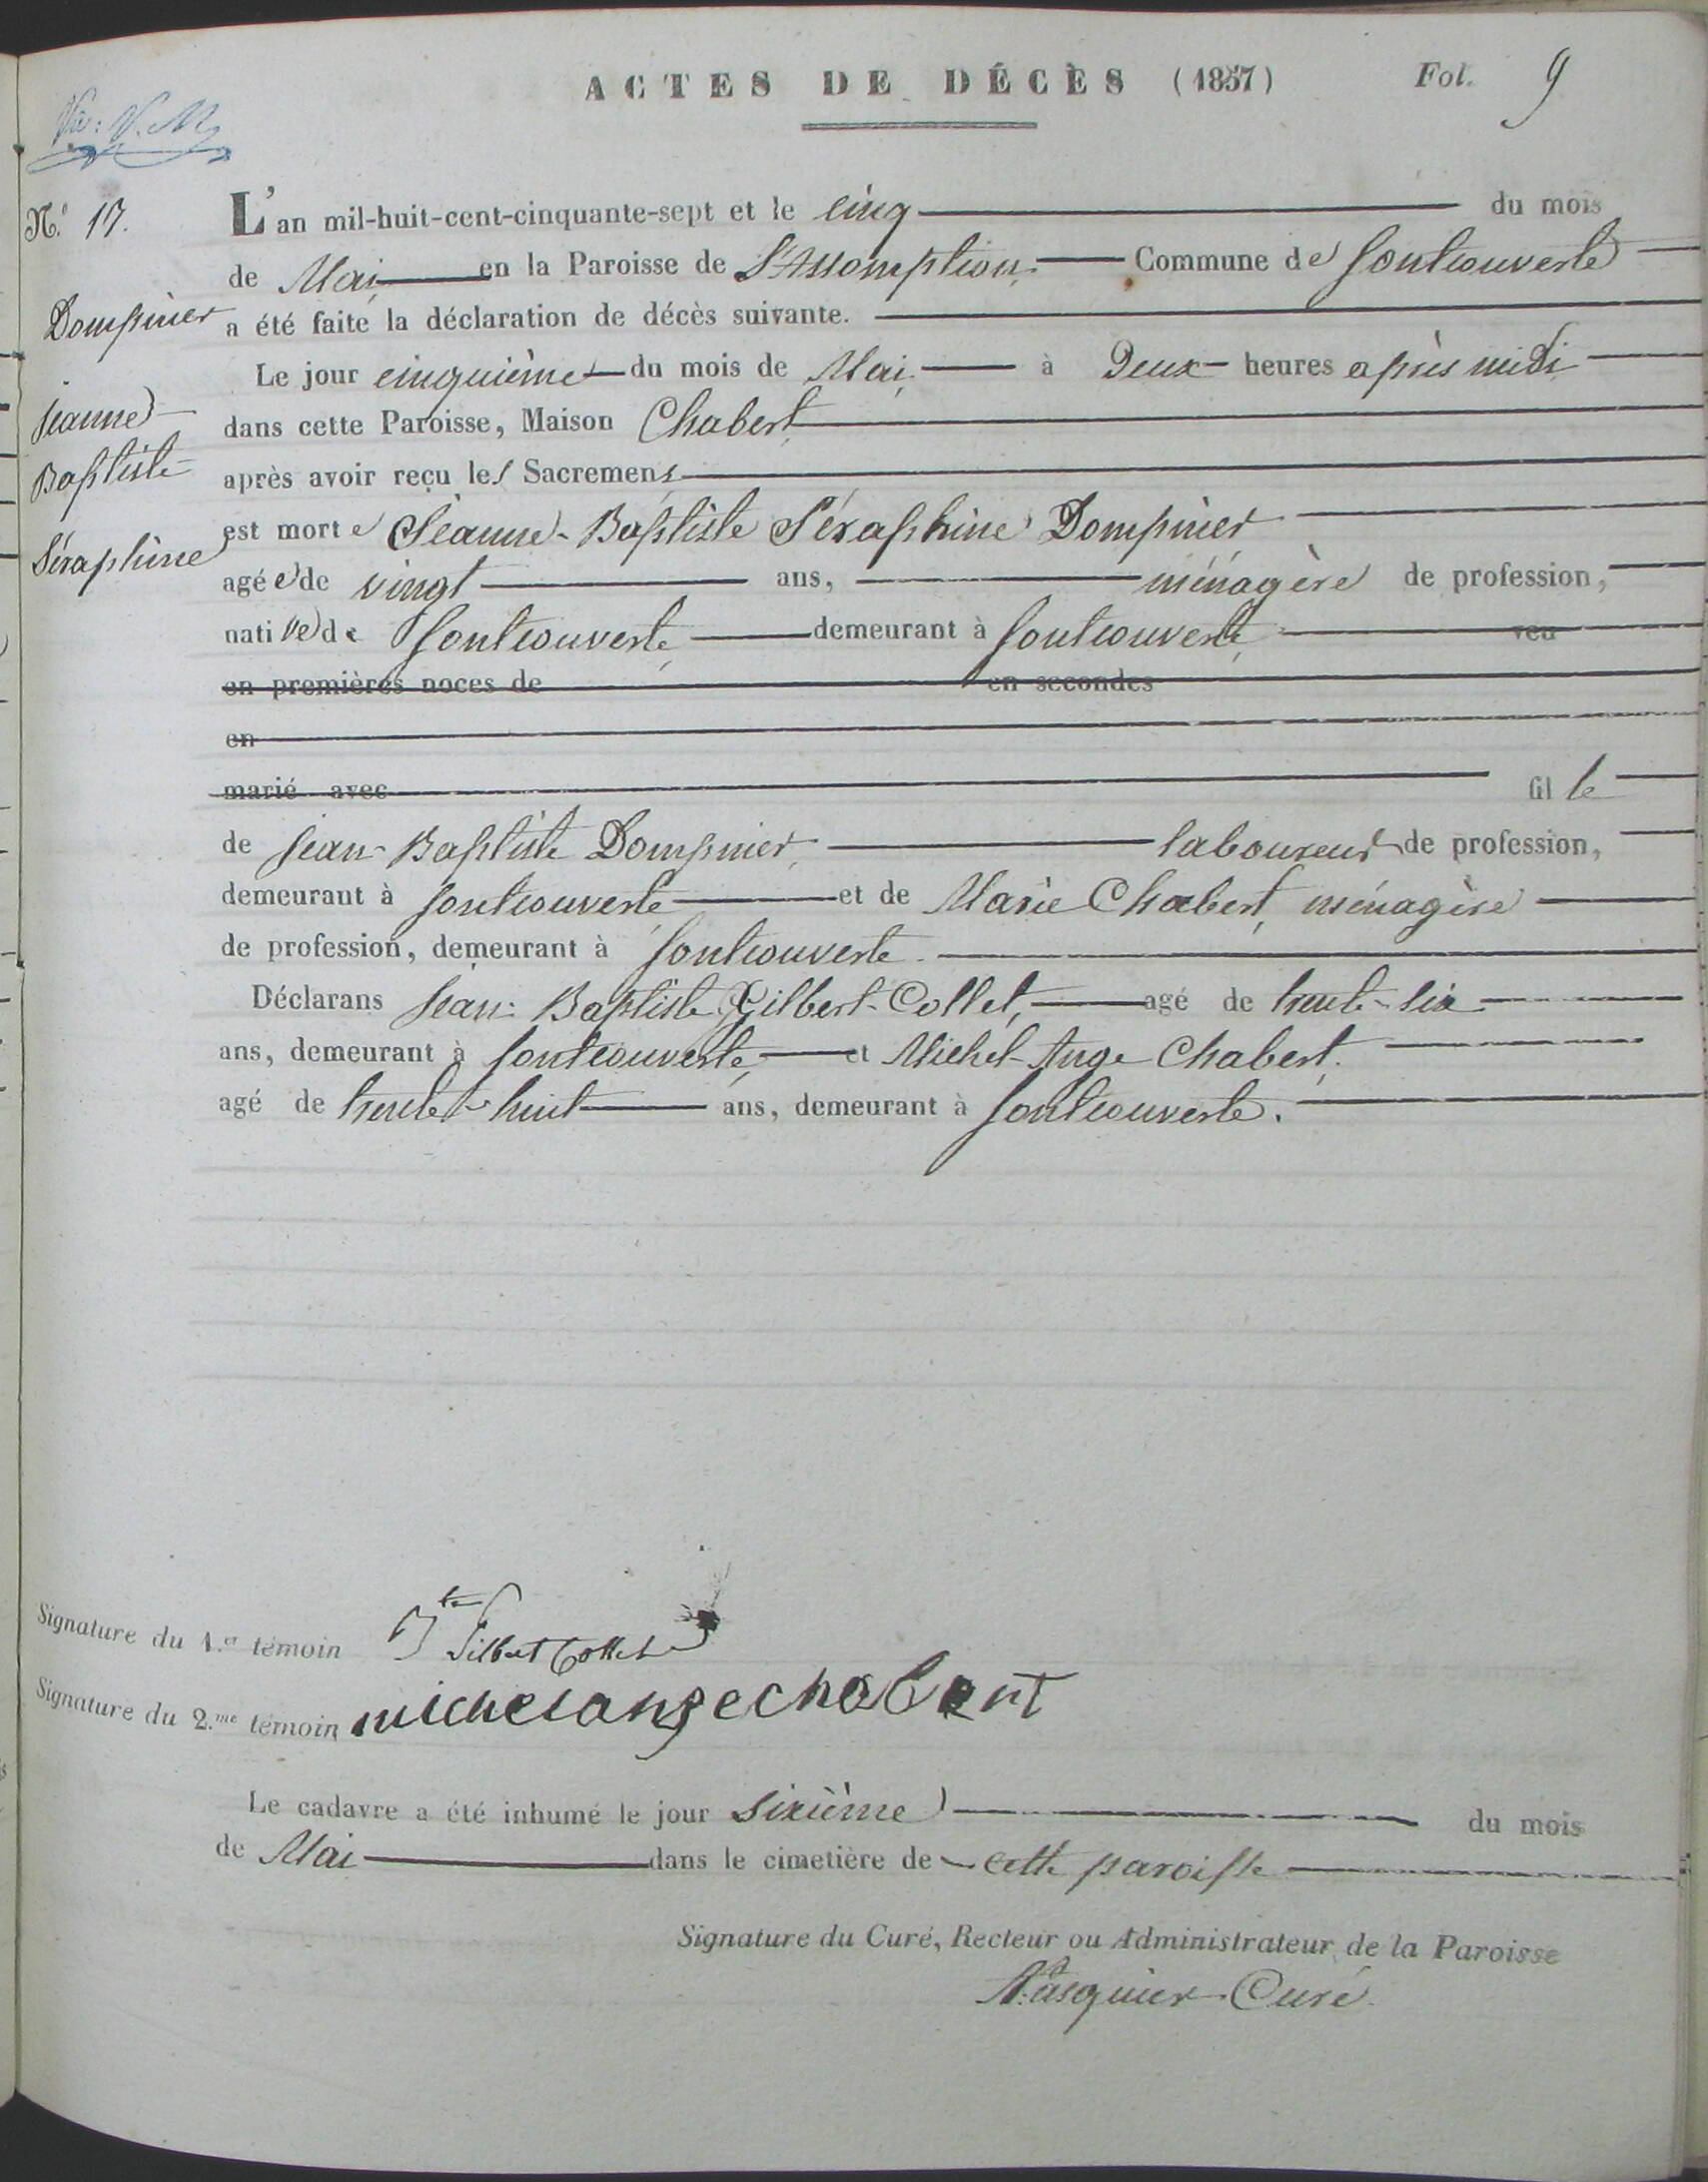 ACTES DE DÉCÈS (1857) Fol. 9
Vu: V. M
N.º 17.
Dompnier
Jeanne
Baptiste
Séraphine
L'an mil-huit-cent-cinquante-sept et le cinq du mois
de Mai en la Paroisse de L'Assomption Commune de Fontcouverte
a été faite la déclaration de décès suivante.
Le jour cinquième du mois de Mai à Deux heures après midi
dans cette Paroisse, Maison Chabert
après avoir reçu les Sacremens
est morte Jeanne-Baptiste Séraphine Dompnier
agée de vingt ans, ménagère de profession,
native de Fontcouverte, demeurant à Fontcouverte, veu
en premières noces de en secondes
en
marié avec fille
de Jean-Baptiste Dompnier, laboureur de profession,
demeurant à Fontcouverte et de Marie Chabert, ménagère
de profession, demeurant à Fontcouverte.
Déclarans Jean-Baptiste Gilbert-Collet, agé de trente-six
ans, demeurant à Fontcouverte, et Michel-Ange Chabert,
agé de trente-huit ans, demeurant à Fontcouverte.
Signature du 1.er témoin Gilbert Collet
Signature du 2.me témoin michelange chabert
Le cadavre a été inhumé le jour sixième du mois
de Mai dans le cimetière de cette paroisse
Signature du Curé, Recteur ou Administrateur de la Paroisse
Curé